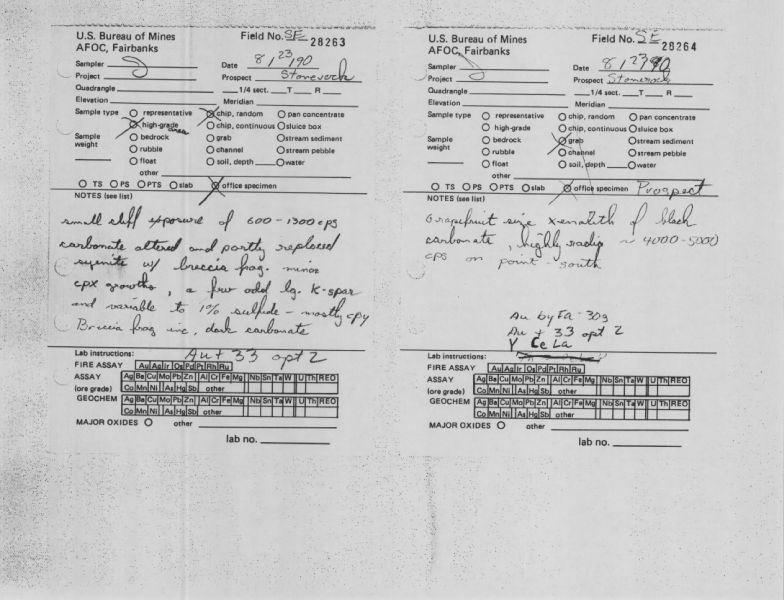 U.S. Bureau of Mines
AFOC, Fairbanks
Field No. SE 28263
Sampler
Date 8/23/90
Project
Prospect Stonerock
Quadrangle 1/4 sect. T R
Elevation Meridian
Sample type representative chip, random pan concentrate
high-grade area chip, continuous sluice box
Sample weight bedrock grab stream sediment
rubble channel stream pebble
float soil, depth water
other
TS PS PTS slab office specimen
NOTES (see list)
small cliff exposure of 600-1300 cps
carbonate altered and partly replaced
syenite w/ breccia frag. minor
cpx growths, a few odd lg. K-spar
and variable to 1% sulfide - mostly cpy
Breccia frag inc, dark carbonate
Lab instructions: Au + 33 opt 2
FIRE ASSAY Au Ag Ir Os Pd Pt Rh Ru
ASSAY Ag Ba Cu Mo Pb Zn Al Cr Fe Mg Nb Sn Ta W U Th REO
(ore grade) Co Mn Ni As Hg Sb other
GEOCHEM Ag Ba Cu Mo Pb Zn Al Cr Fe Mg Nb Sn Ta W U Th REO
Co Mn Ni As Hg Sb other
MAJOR OXIDES other
lab no.
U.S. Bureau of Mines
AFOC, Fairbanks
Field No. SE 28264
Sampler
Date 8/23/90
Project
Prospect Stonerock
Quadrangle 1/4 sect. T R
Elevation Meridian
Sample type representative chip, random pan concentrate
high-grade chip, continuous sluice box
Sample weight bedrock grab stream sediment
rubble channel stream pebble
float soil, depth water
other
TS PS PTS slab office specimen Prospect
NOTES (see list)
Grapefruit size xenolith of black
carbonate, highly radio ~ 4000-5000
cps on point - south
Au by Fa - 30g
Au + 33 opt 2
Y Ce La
Lab instructions:
FIRE ASSAY Au Ag Ir Os Pd Pt Rh Ru
ASSAY Ag Ba Cu Mo Pb Zn Al Cr Fe Mg Nb Sn Ta W U Th REO
(ore grade) Co Mn Ni As Hg Sb other
GEOCHEM Ag Ba Cu Mo Pb Zn Al Cr Fe Mg Nb Sn Ta W U Th REO
Co Mn Ni As Hg Sb other
MAJOR OXIDES other
lab no.